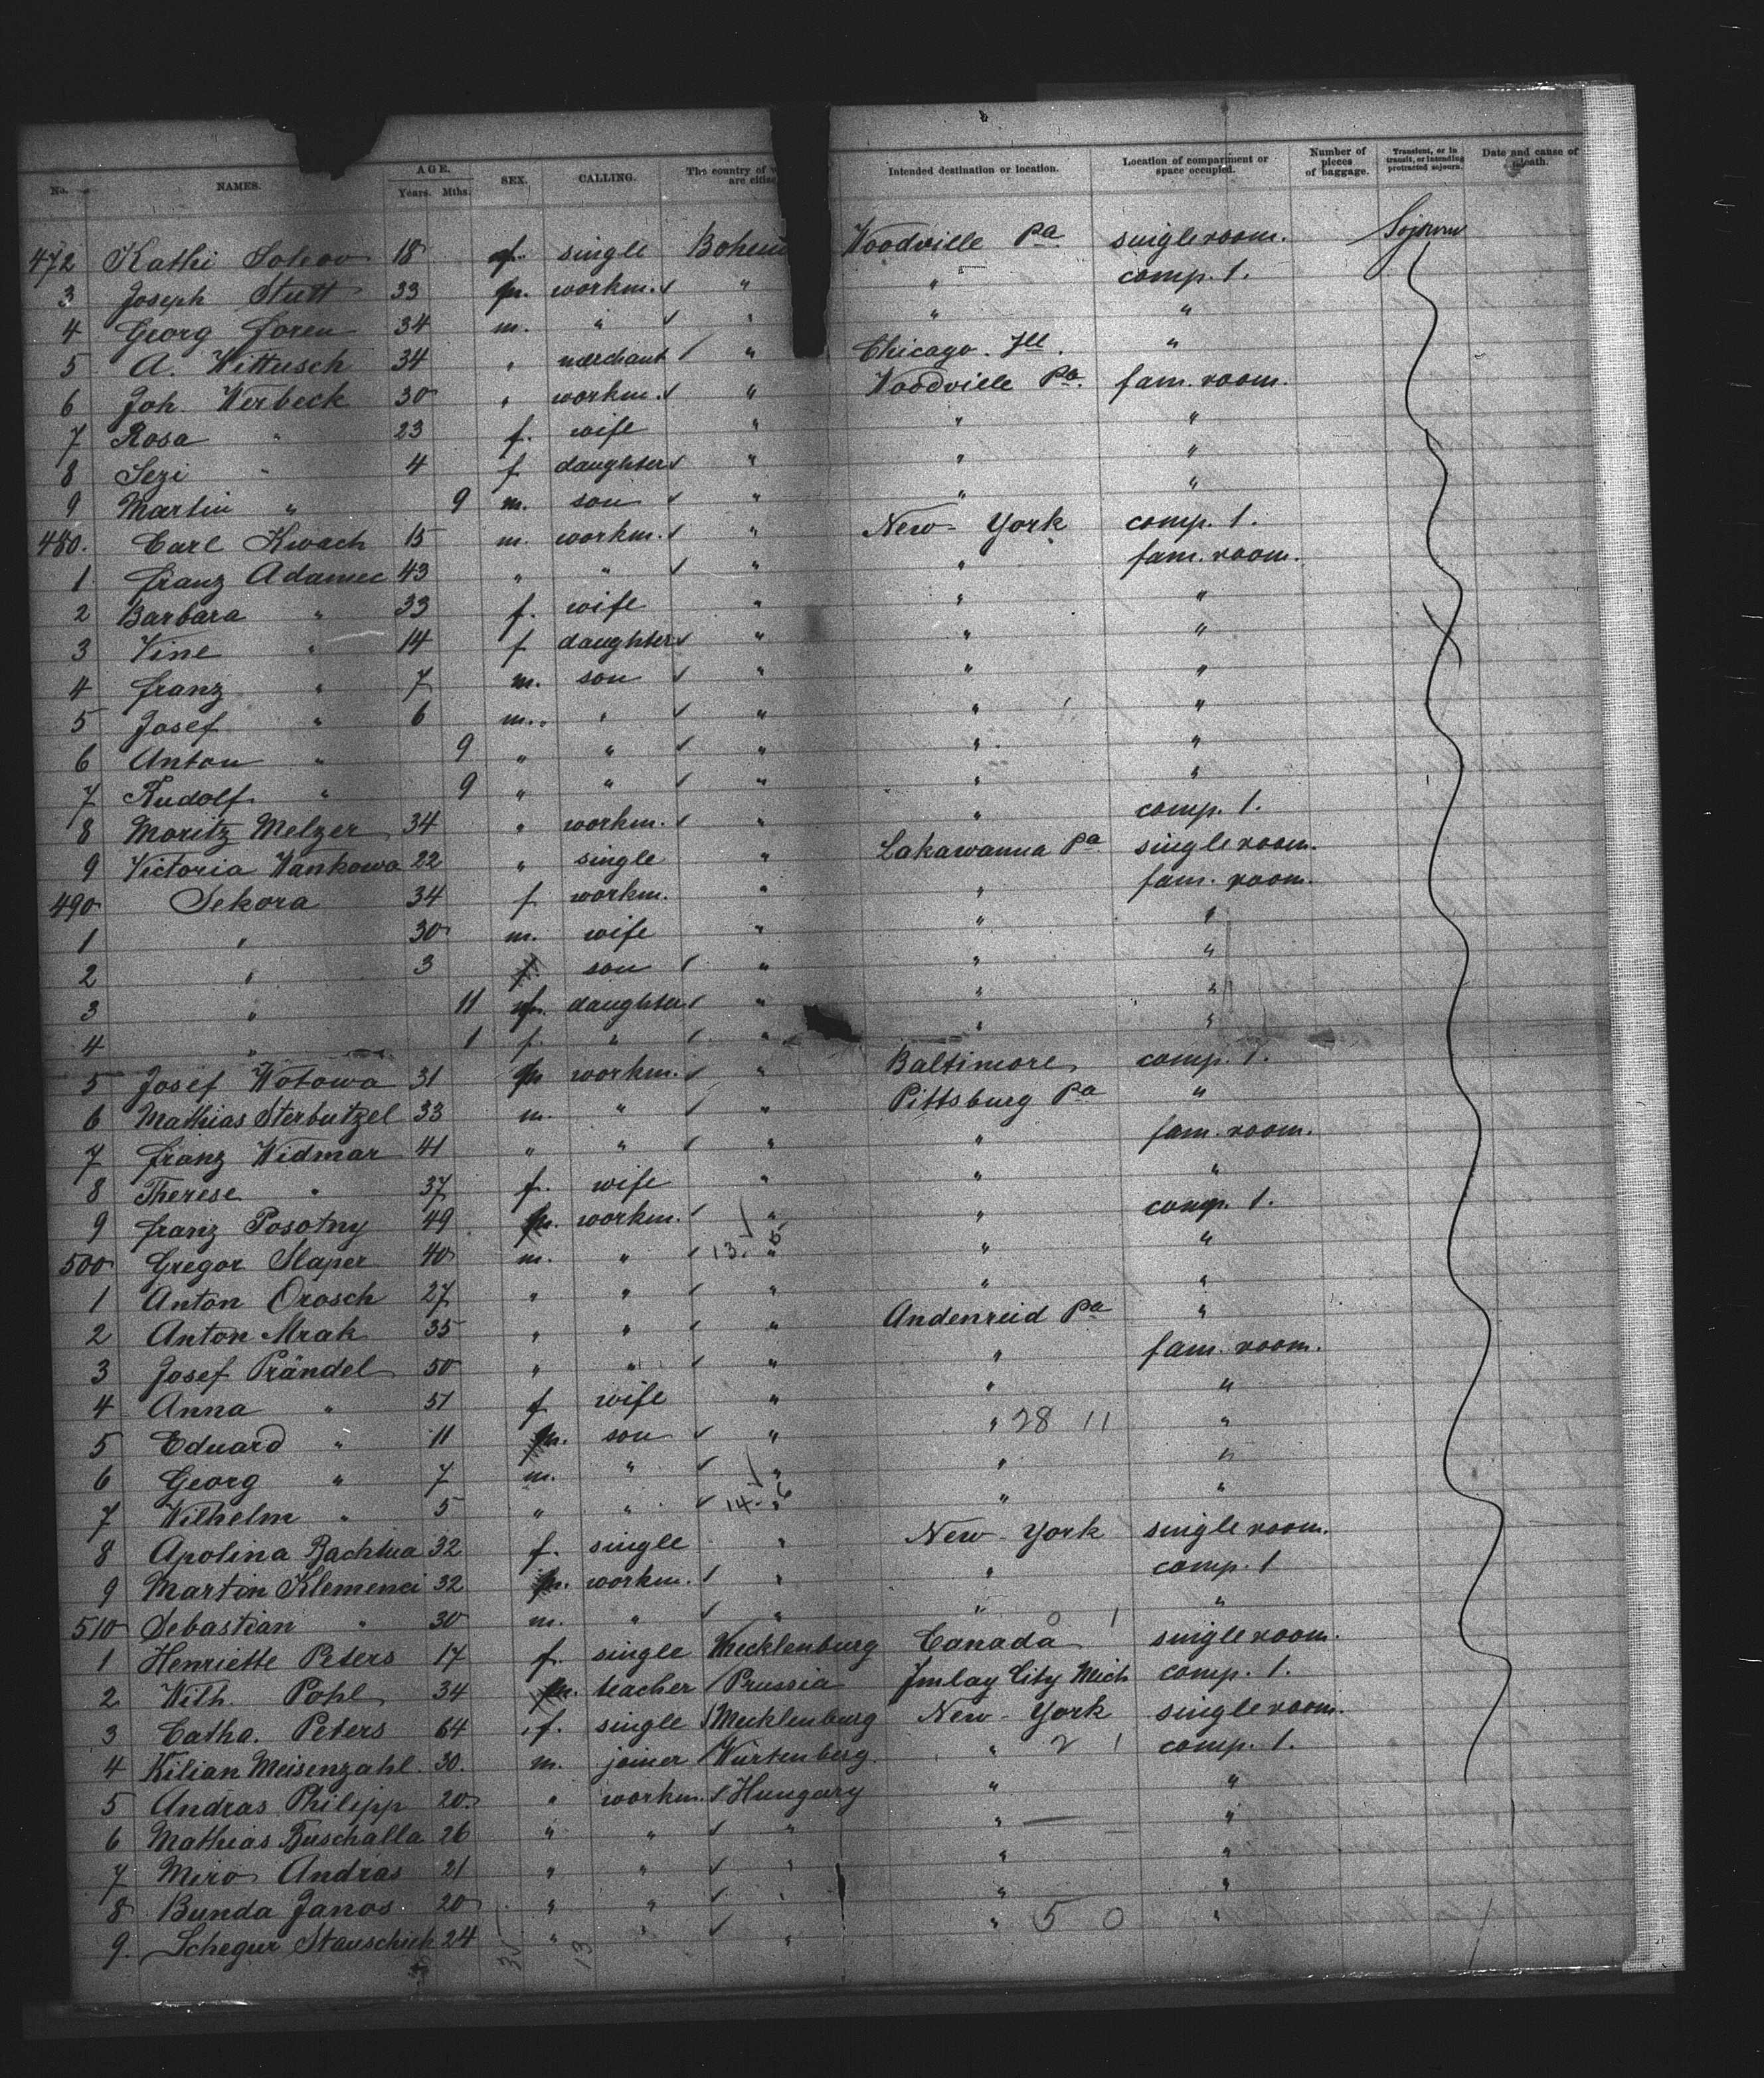 No. NAMES. AGE. Years. Mths. SEX. CALLING. The country of w are citize Intended destination or location. Location of compartment or space occupied. Number of pieces of baggage. Transient, or in transit, or intending protracted sojourn. Date and cause of death.
472 Kathi 18 f. single Bohem Woodville Pa single room. Sojourn
3 Joseph Stutt 33 m. workm. " " comp. 1.
4 Georg Loren 34 m. " " " "
5 A. Wittusch 34 " merchant " Chicago. Ill. "
6 Joh. Werbeck 30 " workm. " Woodville Pa. fam. room.
7 Rosa " 23 f. wife " " "
8 Sezi " 4 f daughter " " "
9 Martin " 9 m. son " " "
480. Carl Kwach 15 m. workm. " New-York comp. 1.
1 Franz Adamec 43 " " " " fam. room.
2 Barbara " 33 f. wife " " "
3 Vine " 14 f daughter " " "
4 Franz " 7 m. son " " "
5 Josef " 6 m. " " " "
6 Anton " 9 " " " " "
7 Rudolf " 9 " " " " "
8 Moritz Melzer 34 " workm. " " comp. 1.
9 Victoria Wankowa 22 " single " Lakawanna Pa single room.
490 Sekora 34 f workm. " " fam. room.
1 " 30 m. wife " " "
2 " 3 f. son " " "
3 " 11 daughter " " "
4 " 1 f. " " " "
5 Josef Wotowa 31 m workm. " Baltimore comp. 1.
6 Mathias Sterbutzel 33 m. " " Pittsburg Pa "
7 Franz Widmar 41 " " " " fam. room.
8 Therese " 37 f. wife " " "
9 Franz Posotny 49 m. workm. " " comp. 1.
500 Gregor Slaper 40 m. " 13. " " "
1 Anton Orosch 27 " " " " "
2 Anton Mrak 35 " " " Andenreid Pa "
3 Josef Prändel 50 " " " " fam. room.
4 Anna " 51 f wife " " "
5 Eduard " 11 m. son " " 28 11 "
6 Georg " 7 m. " " " "
7 Wilhelm " 5 " " 14. 6 " " "
8 Apolina Bachtua 32 f. single " New-York single room.
9 Martin Klemenci 32 m. workm. " " comp. 1
510 Sebastian " 30 m. " " " 0 1 "
1 Henriette Peters 17 f. single Mecklenburg Canada single room.
2 Wilh. Pohl 34 m. teacher Prussia Jmlay City Mich comp. 1.
3 Catha. Peters 64 f. single Mecklenburg New-York single room.
4 Kilian Meisenzahl. 30. m. joiner Würtenberg. " 2 1 comp. 1.
5 Andras Philipp 20. " workm. Hungary " "
6 Mathias Ruschalla 26 " " " " "
7 Miro Andras 21 " " " " "
8 Bunda Janos 20 " " " " "
9. Schegur Stauschick 24 " " " " 5 0 "
13